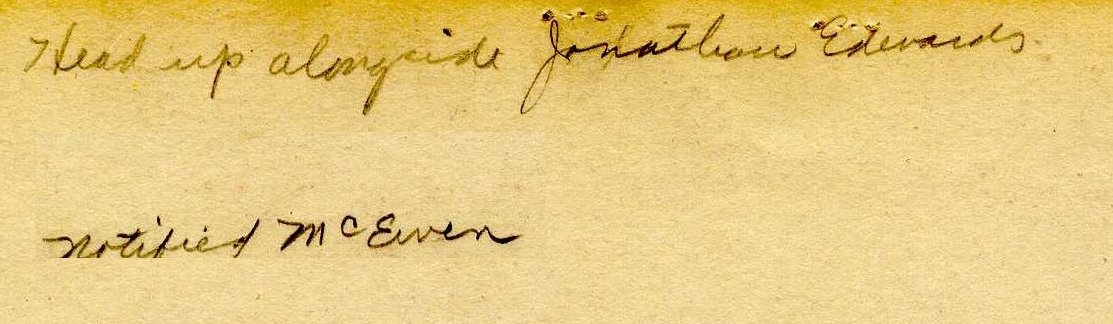 Head up alongside Jonathan Edwards.
Notified McEwen